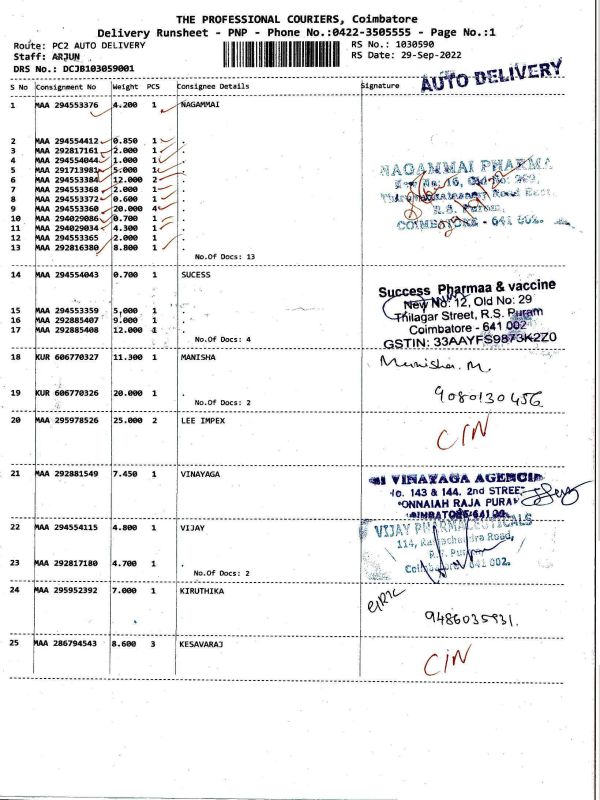 THE PROFESSIONAL COURIERS, Coimbatore
Delivery Runsheet - PNP - Phone No.:0422-3505555 - Page No.:1
Route: PC2 AUTO DELIVERY RS No.: 1030590
Staff: ARJUN RS Date: 29-Sep-2022
DRS No.: DCJB103059001
AUTO DELIVERY
S No Consignment No Weight PCS Consignee Details Signature
1 MAA 294553376 4.200 1 NAGAMMAI
2 MAA 294554412 0.850 1 .
3 MAA 292817161 2.000 1 .
4 MAA 294554044 1.000 1 .
5 MAA 291713981 5.000 1 .
6 MAA 294553384 12.000 2 .
7 MAA 294553368 2.000 1 .
8 MAA 294553372 0.600 1 .
9 MAA 294553360 20.000 4 .
10 MAA 294029086 0.700 1 .
11 MAA 294029034 4.300 1 .
12 MAA 294553365 2.000 1 .
13 MAA 292816380 8.800 1 .
No.Of Docs: 13
NAGAMMAI PHARMA
New No: 16, Old No: 209,
Road East,
R.S. Puram,
COIMBATORE - 641 002.
14 MAA 294554043 0.700 1 SUCESS
15 MAA 294553359 5,000 1 .
16 MAA 292885407 9.000 1 .
17 MAA 292885408 12.000 1 .
No.Of Docs: 4
Success Pharmaa & vaccine
New No: 12, Old No: 29
Thilagar Street, R.S. Puram
Coimbatore - 641 002
GSTIN: 33AAYFS9873K2Z0
18 KUR 606770327 11.300 1 MANISHA
Manisha. M.
19 KUR 606770326 20.000 1 .
No.Of Docs: 2
9080130456
20 MAA 295978526 25.000 2 LEE IMPEX
C/N
21 MAA 292881549 7.450 1 VINAYAGA
VINAYAGA AGENCIE
No. 143 & 144. 2nd STREET
PONNAIAH RAJA PURAM
22 MAA 294554115 4.800 1 VIJAY
23 MAA 292817180 4.700 1 .
No.Of Docs: 2
VIJAY PHARMACEUTICALS
114, Ramachandra Road,
R.S. Puram,
Coimbatore 641 002.
24 MAA 295952392 7.000 1 KIRUTHIKA
9486035931.
25 MAA 286794543 8.600 3 KESAVARAJ
C/N